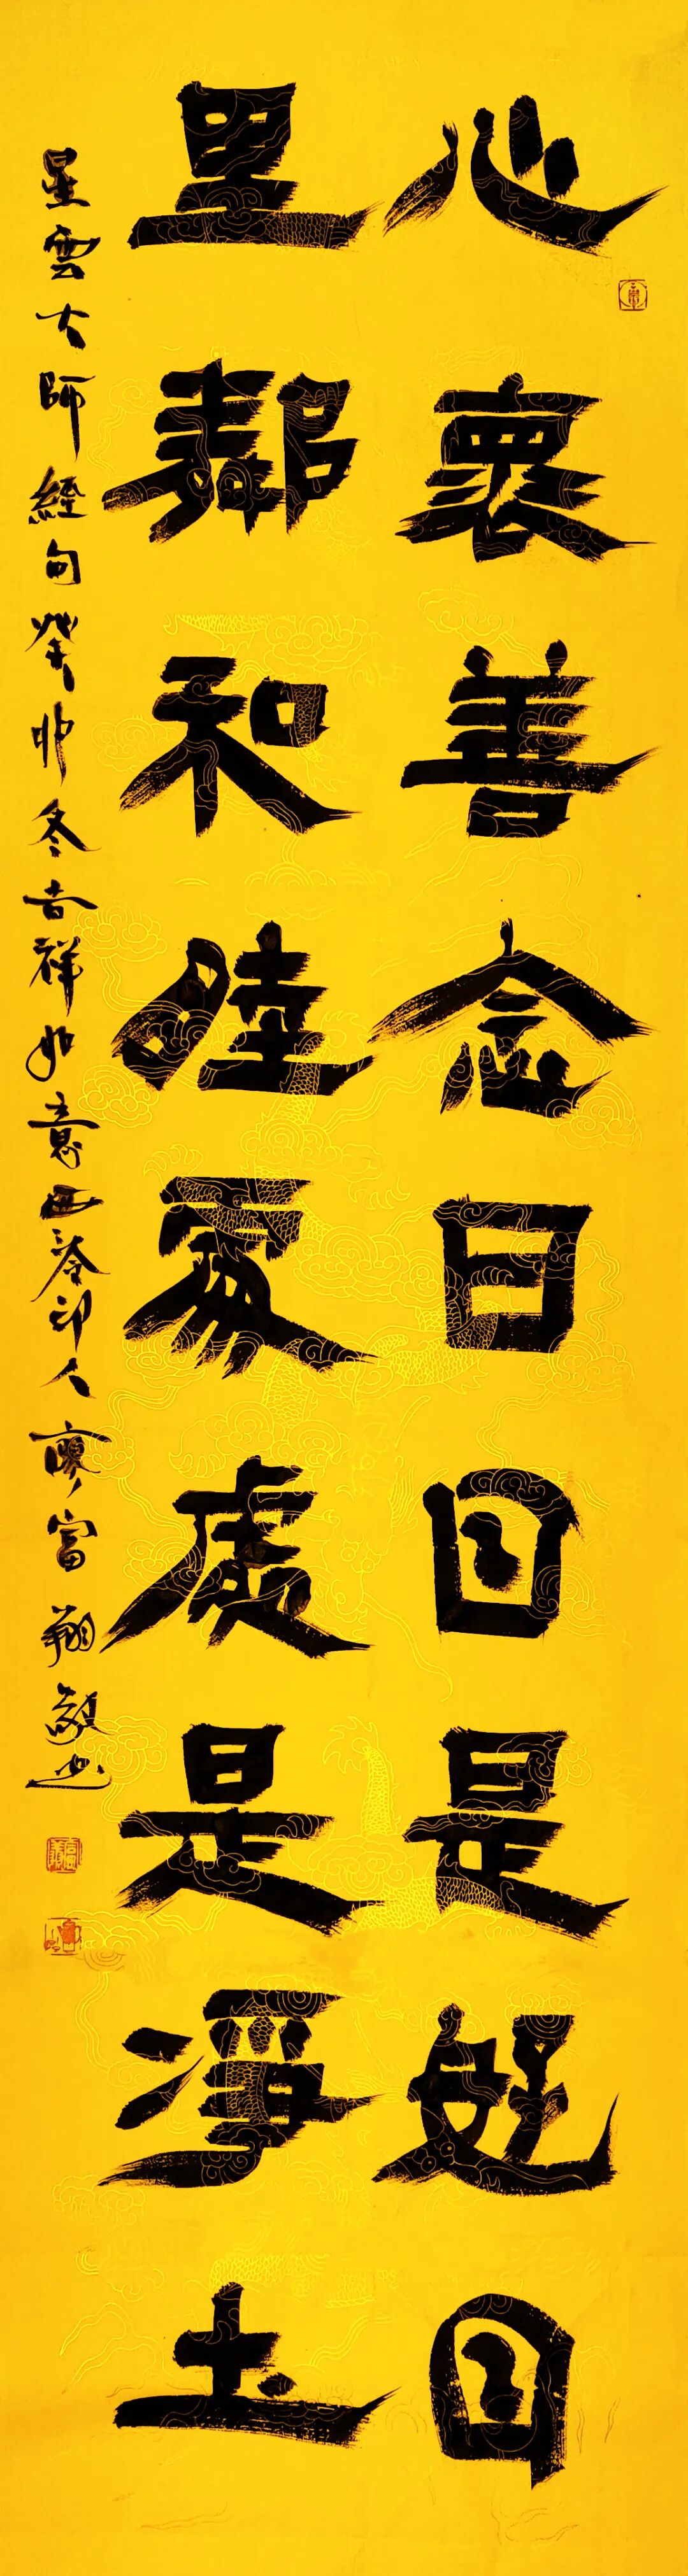 心褱善念日日是好日
里鄰和睦處處是凈土
星雲大師經句癸卯冬吉祥如意西泠印人廖富翔敬書